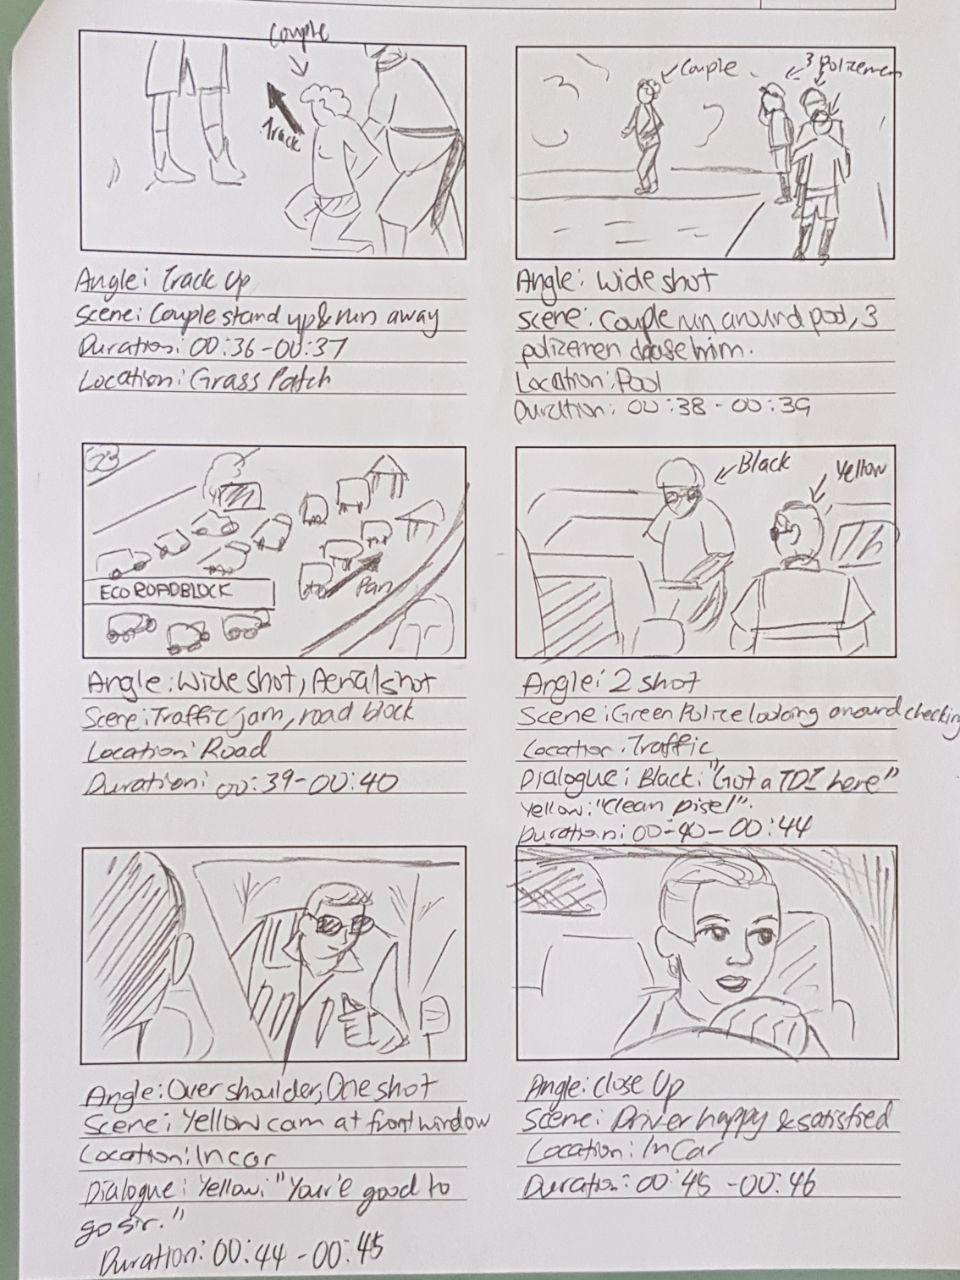 Couple
Track
Angle: Track Up
Scene: Couple stand up & run away
Duration: 00:36-00:37
Location: Grass Patch
Couple
3 Polizemen
Angle: Wide shot
Scene: Couple run around pool, 3
polizemen chase him.
Location: Pool
Duration: 00:38-00:39
23
ECO ROADBLOCK
Pan
Angle: Wide shot, Aerial shot
Scene: Traffic jam, road block
Location: Road
Duration: 00:39-00:40
Black
Yellow
Angle: 2 shot
Scene: Green Police looking around checking
Location: Traffic
Dialogue: Black: "Got a TDI here"
Yellow: "Clean Disel".
Duration: 00-40-00:44
Angle: Over shoulder, One shot
Scene: Yellow cam at front window
Location: In car
Dialogue: Yellow: "Your'e good to
go sir."
Duration: 00:44-00:45
Angle: Close Up
Scene: Driver happy & satisfied
Location: In Car
Duration: 00:45-00:46